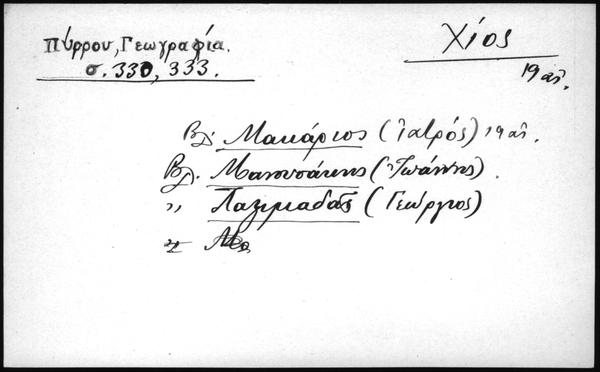 Πύρρου, Γεωγραφία.
σ. 330, 333.
Χίος
19 αἰ.
Βλ. Μακάριος (Ἰατρός) 19 αἰ.
Βλ. Μανουσάκης (Ἰωάννης).
〃 (Γεώργιος)